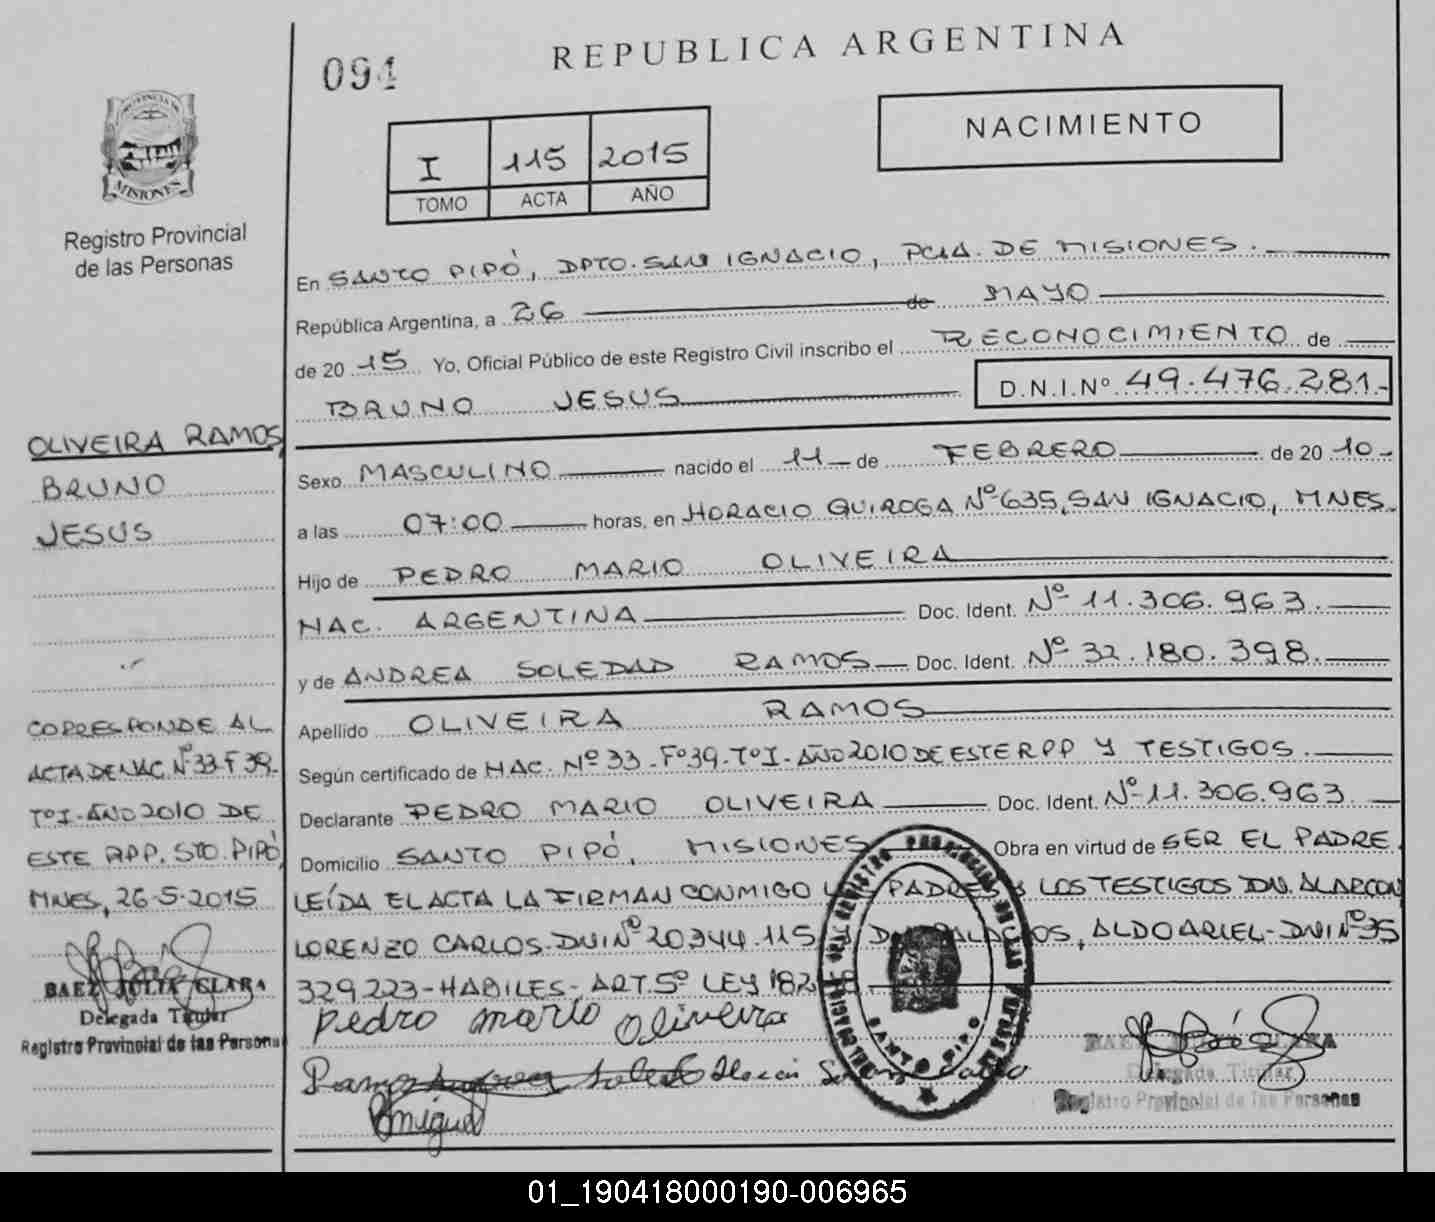 094
REPUBLICA ARGENTINA
NACIMIENTO
I 115 2015
TOMO ACTA AÑO
MISIONES
Registro Provincial
de las Personas
En SANTO PIPÓ, DPTO. SAN IGNACIO, PCIA. DE MISIONES.
República Argentina, a 26 de MAYO
de 2015 Yo, Oficial Público de este Registro Civil inscribo el RECONOCIMIENTO de
BRUNO JESUS D.N.I.Nº 49.476.281.-
Sexo MASCULINO nacido el 11 de FEBRERO de 2010-
a las 07:00 horas, en HORACIO QUIROGA Nº 635, SAN IGNACIO, MNES.
Hijo de PEDRO MARIO OLIVEIRA
NAC. ARGENTINA Doc. Ident. Nº 11.306.963.
y de ANDREA SOLEDAD RAMOS Doc. Ident. Nº 32.180.398.
Apellido OLIVEIRA RAMOS
Según certificado de NAC. Nº 33-Fº39-TºI-AÑO 2010 DE ESTE RPP Y TESTIGOS.
Declarante PEDRO MARIO OLIVEIRA Doc. Ident. Nº 11.306.963.
Domicilio SANTO PIPÓ, MISIONES Obra en virtud de SER EL PADRE.
LEÍDA EL ACTA LA FIRMAN CONMIGO PADRES Y LOS TESTIGOS DN. ALARCON
LORENZO CARLOS-DNI Nº 20344.115 ALDO ARIEL-DNI Nº 35
329.223-HABILES-ART.5º LEY 182
Pedro Mario Oliveira
Miguel
OLIVEIRA RAMOS,
BRUNO
JESUS
CORRESPONDE AL
ACTA DE NAC. Nº 33-F 39-
TºI-AÑO 2010 DE
ESTE RPP. STO. PIPÓ,
MNES, 26-5-2015
BAEZ JULIA CLARA
Delegada Titular
Registro Provincial de las Persona
SANTO PIPO
Delegada Titular
Registro Provincial de las Personas
01_190418000190-006965